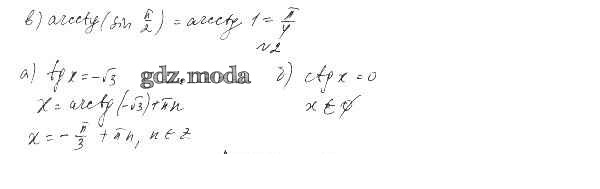 в) arcctg(sin π/2) = arcctg 1 = π/4
№2
а) tg x = -√3 gdz.moda б) ctg x = 0
x = arctg(-√3) + πn x ∈ ∅
x = - π/3 + πn, n ∈ z